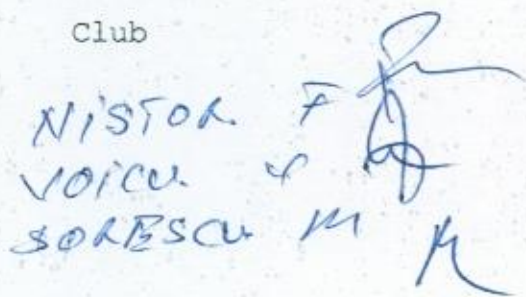 Club
NISTOR F
VOICU
SORESCU M